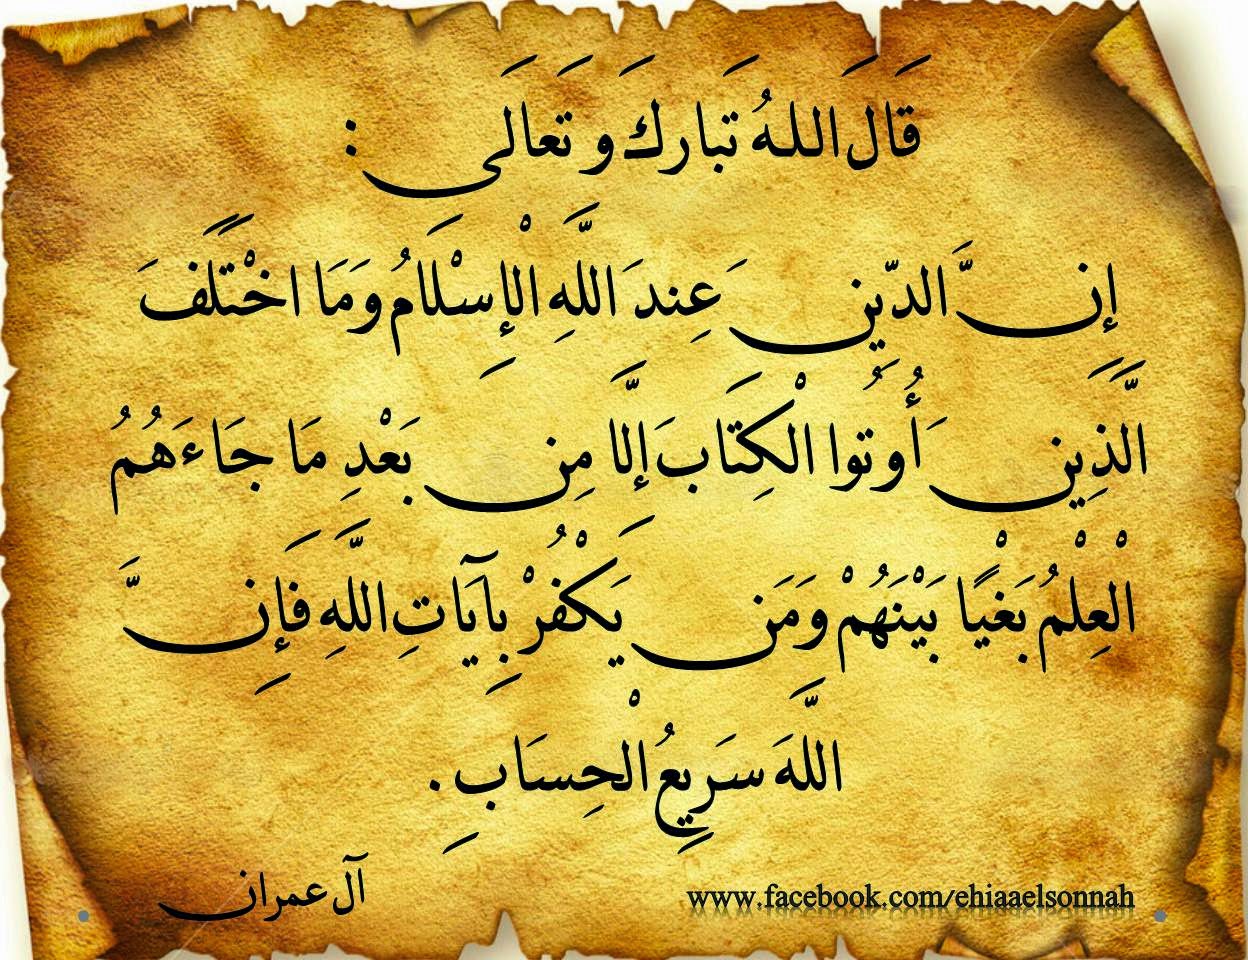 قَالَ اللهُ تَبارَكَ و تَعالَى :
إِنَّ الدِّينَ عِندَ اللَّهِ الْإِسْلَامُ وَمَا اخْتَلَفَ
الَّذِينَ أُوتُوا الْكِتَابَ إِلَّا مِن بَعْدِ مَا جَاءَهُمُ
الْعِلْمُ بَغْيًا بَيْنَهُمْ وَمَن يَكْفُرْ بِآيَاتِ اللَّهِ فَإِنَّ
اللَّهَ سَرِيعُ الْحِسَابِ .
آل عمران
www.facebook.com/ehiaaelsonnah